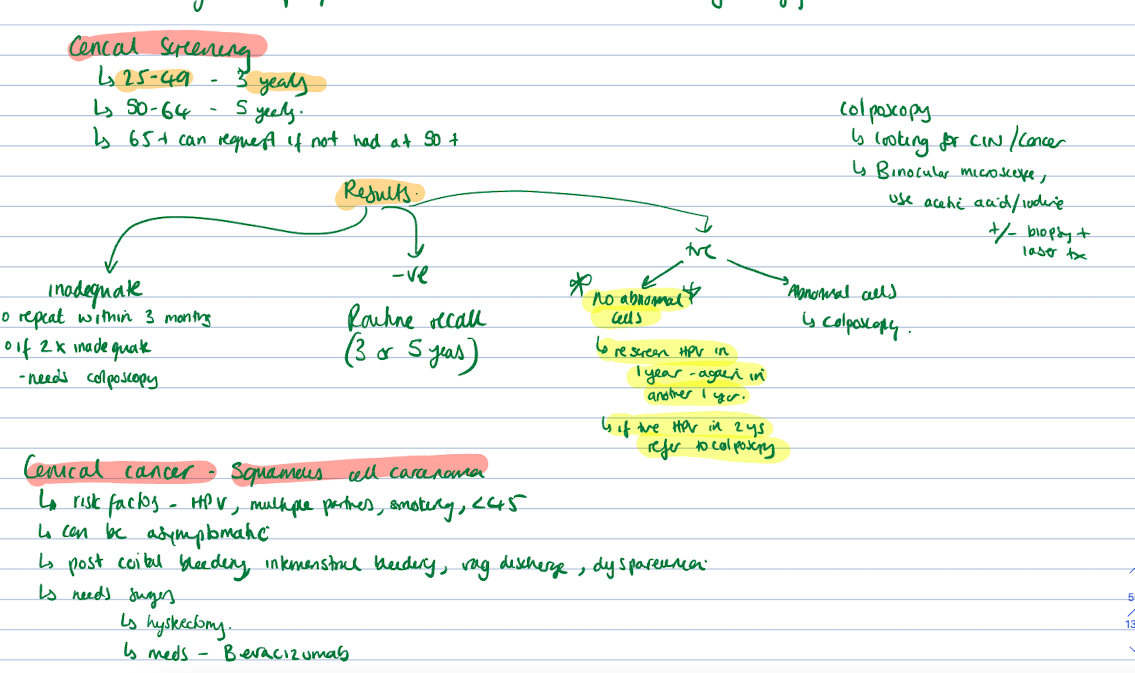 Cervical Screening
↳ 25-49 - 3 years
↳ 50-64 - 5 years.
↳ 65+ can request if not had at 50+
Colposcopy
↳ looking for CIN / Cancer
↳ Binocular microscope,
use acetic acid/iodine
+/- biopsy +
laser tx
Results.
inadequate
o repeat within 3 months
o if 2x inadequate
- needs colposcopy
-ve
Routine recall
(3 or 5 years)
+ve
* no abnormal *
cells
↳ rescreen HPV in
1 year - again in
another 1 year.
↳ if +ve HPV in 2 yrs
refer to colposcopy
Abnormal cells
↳ colposcopy.
Cervical cancer - Squamous cell carcinoma
↳ risk factors - HPV, multiple partners, smoking, <45
↳ can be asymptomatic
↳ post coital bleeding, intermenstrual bleeding, vag discharge, dyspareunia.
↳ needs surgery
↳ hysterectomy.
↳ meds - Bevacizumab
5
13